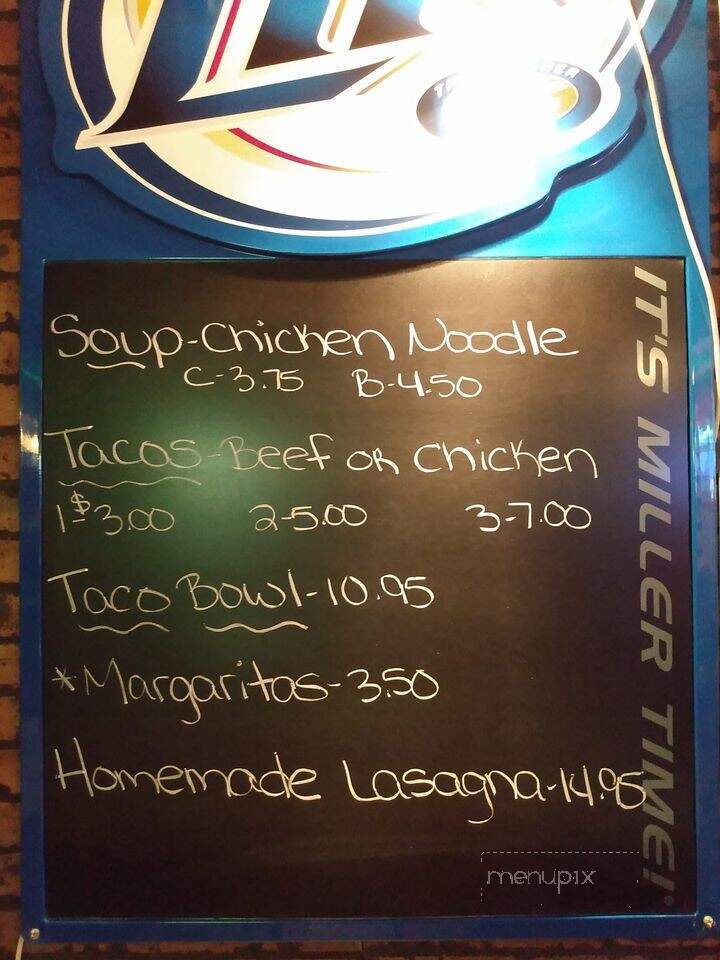 Soup-Chicken Noodle
C-3.75 B-4.50
Tacos-Beef or Chicken
1-$3.00 2-5.00 3-7.00
Taco Bowl-10.95
*Margaritas-3.50
Homemade Lasagna-14.95
IT'S MILLER TIME!
menupix